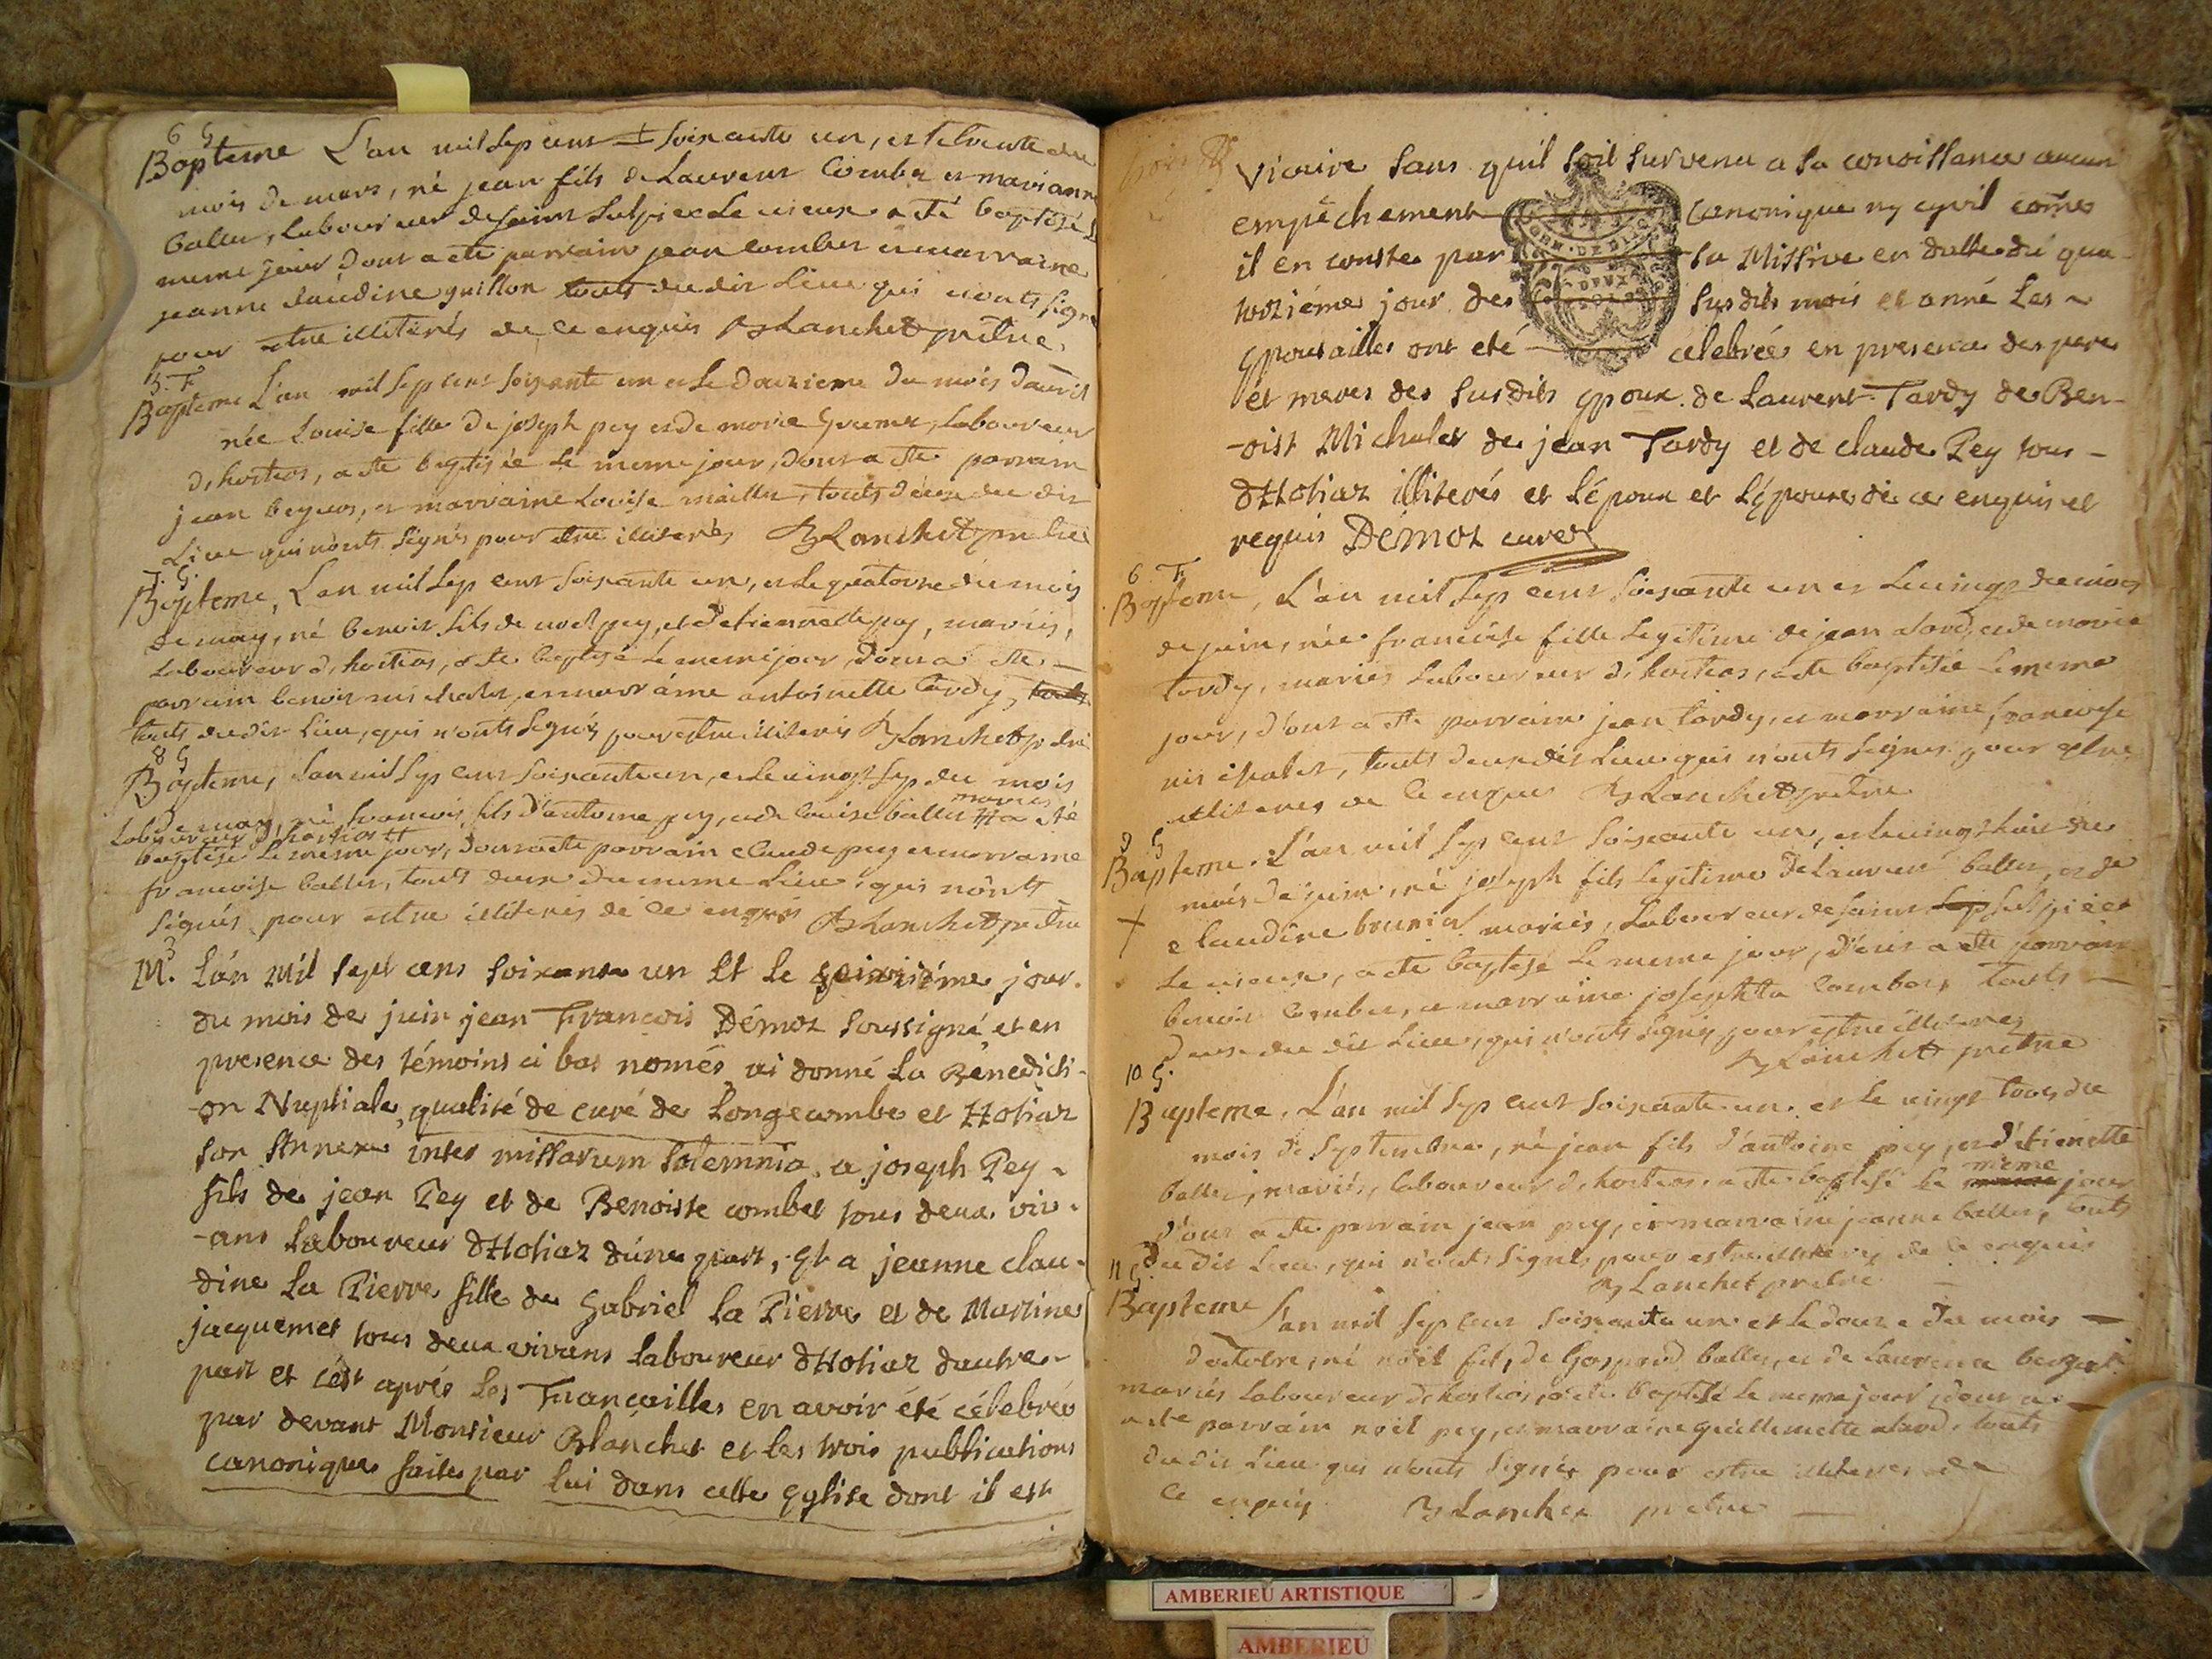 6 G
Bapteme L'an mil sep cent soixante un, et le trente du
mois de mars, né jean fils de Laurent Combe et marianne
ballet, laboureur de saint sulpice le vieux a eté baptisé le
meme jour dont a eté parrain jean combet et marraine
jeanne claudine guillon touts du dit Lieu qui n'onts signé
pour etre illiterés de ce enquis Blanchet prêtre
5. F
Bapteme L'an mil sep cent soixante un et le douzieme du mois d'avril
née Louise fille de joseph pey et de marie , laboureur
d'hostias, a eté baptisée le meme jour, dont a eté parrain
jean , et marraine Louise maillet, touts deux du dit
Lieu qui n'onts signés pour etre illiterés Blanchet pretre
7. G.
Bapteme, L'an mil sep cent soixante un, et le quatorze du mois
de may, né benoit fils de noel pey, et d'etiennette pey, mariés,
laboureur d'hostias, a eté baptisé le meme jour, dont a eté
parrain benoit michalet, et marraine antoinette tardy, touts
touts du dit Lieu, qui n'onts signés pour estre illiterés Blanchet pretre
8 G
Bapteme, L'an mil sep cent soixante un, et le vingt sep du mois
mariés
de may, né francois, fils d'antoine pey, et de louise ballet # a eté
laboureur d'hostias #
baptisé le meme jour, dont a eté parrain claude pey et marraine
francoise ballet, touts deux du meme Lieu, qui n'onts
signés pour estre illiterés de ce enquis Blanchet pretre
3
M. L'an Mil sept cens soixante un Et le jour
du mois de juin jean François Démoz soussigné, et en
presence des témoins ci bas només ai donné la Bénédicti-
-on Nuptiale, qualité de curé de Longecombe et Hotiaz
son Annexe inter missarum solemnia a joseph Pey
fils de jean Pey et de Benoiste combet tous deux viv-
-ans laboureur d'Hotiaz d'une part, Et a jeanne clau-
dine La Pierre fille de Gabriel La Pierre et de Martine
jacquemet tous deux vivans laboureur d'Hotiaz dautre
part et c'est aprés les Fiançailles en avoir été célebrés
par devant Monsieur Blanchet et les trois publications
canoniques faites par lui dans cette Eglise dont il est
Vicaire sans quil soit survenu a sa conoissance aucun
empêchement canonique ny cyvil comes
il en conste par sa Missive en datte du qua-
torziéme jour des susdits mois et anné Les
Epousailles ont eté célebrées en presence des peres
et meres des susdits Epoux de Laurent Tardy de Ben-
-oist Michalet de jean Tardy et de claude Pey tous
d'Hotiaz illiterés et l'époux et l'épouse de ce enquis et
requis Démoz curé
6 F
Bapteme, L'an mil sep cent soixante un et le vingt du mois
de juin, née francoise fille legitime de jean alard, et de marie
tardy, mariés laboureur d'hostias, a eté baptisée le meme
jour, d'ont a eté parrain jean tardy, et marraine francoise
michalet, touts deux du dit Lieu qui n'onts signés pour estre
illiteres de ce enquis Blanchet pretre
9 G
Bapteme. L'an mil sep cent soixante un, et le vingt huit du
mois de juin, né joseph fils legitime de laurent ballet, et de
claudine mariés, laboureur de saint sulpice
le vieux, a eté baptisé le meme jour, d'ont a eté parrain
benoit combet, et marraine josephta combet touts
deux du dit Lieu, qui n'onts signés pour estre illiteres
Blanchet pretre
10 G.
Bapteme. L'an mil sep cent soixante un. et le vingt trois du
mois de septembre, né jean fils d'antoine pey, et d'etienette
meme
ballet, mariés, laboureur d'hostias, a eté baptisé le jour
d'ont a eté parrain jean pey, et marraine jeanne ballet, touts
du dit Lieu, qui n'onts signés pour estre illiteres de ce enquis
Blanchet pretre
11 G.
Bapteme L'an mil sep cent soixante un et le douze du mois
d'octobre, né noël fils de Gaspard ballet, et de laurence
mariés laboureur d'hostias, a eté baptisé le meme jour dont a
eté parrain noël pey, et marraine guillemette alard, touts
du dit Lieu qui n'onts signés pour estre illiteres de
ce enquis Blanchet pretre
AMBERIEU ARTISTIQUE
AMBERIEU